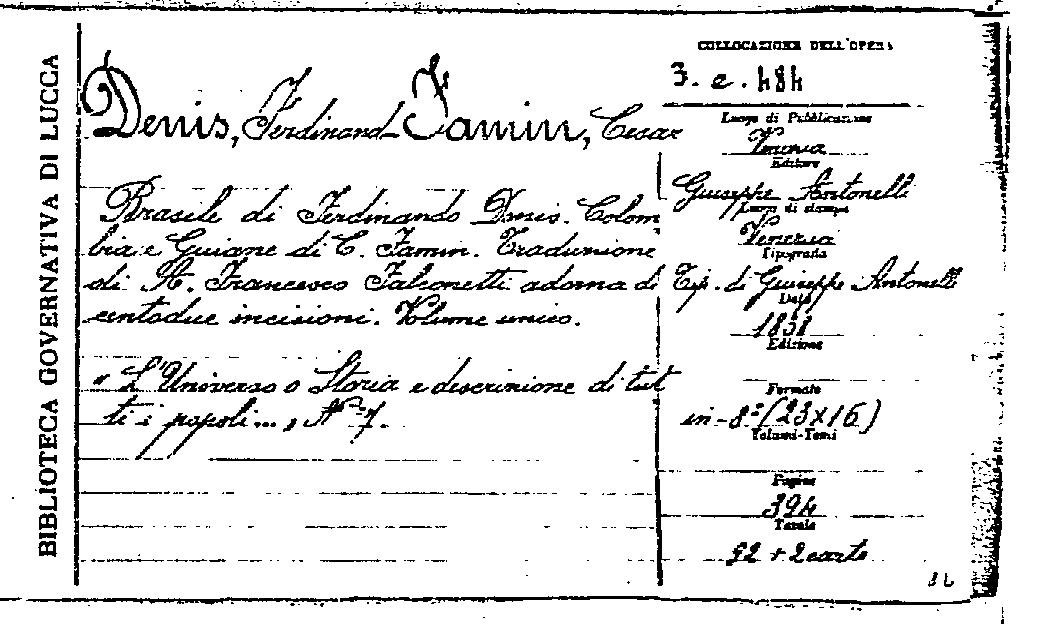 BIBLIOTECA GOVERNATIVA DI LUCCA
Denis, Ferdinand - Famin, Cesar
Brasile di Ferdinando Denis. Colom
bia e Guiane di C. Famin. Traduzione
di A. Francesco Falconetti adorna di
centodue incisioni. Volume unico.
"L'Universo o Storia e descrizione di tut
ti i popoli..., N° 7.
COLLOCAZIONE DELL'OPERA
3. e. 484
Luogo di Pubblicazione
Venezia
Editore
Giuseppe Antonelli
Luogo di stampa
Venezia
Tipografia
Tip. di Giuseppe Antonelli
Data
1838
Edizione
Formato
in-8° (23x16)
Volumi-Tomi
Pagine
394
Tavole
92 + 2 carte